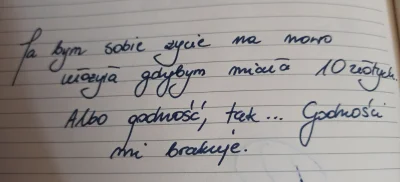 Ja bym sobie życie na nowo
ułożyła gdybym miała 10 złotych.
Albo godność, tak... Godności
mi brakuje.